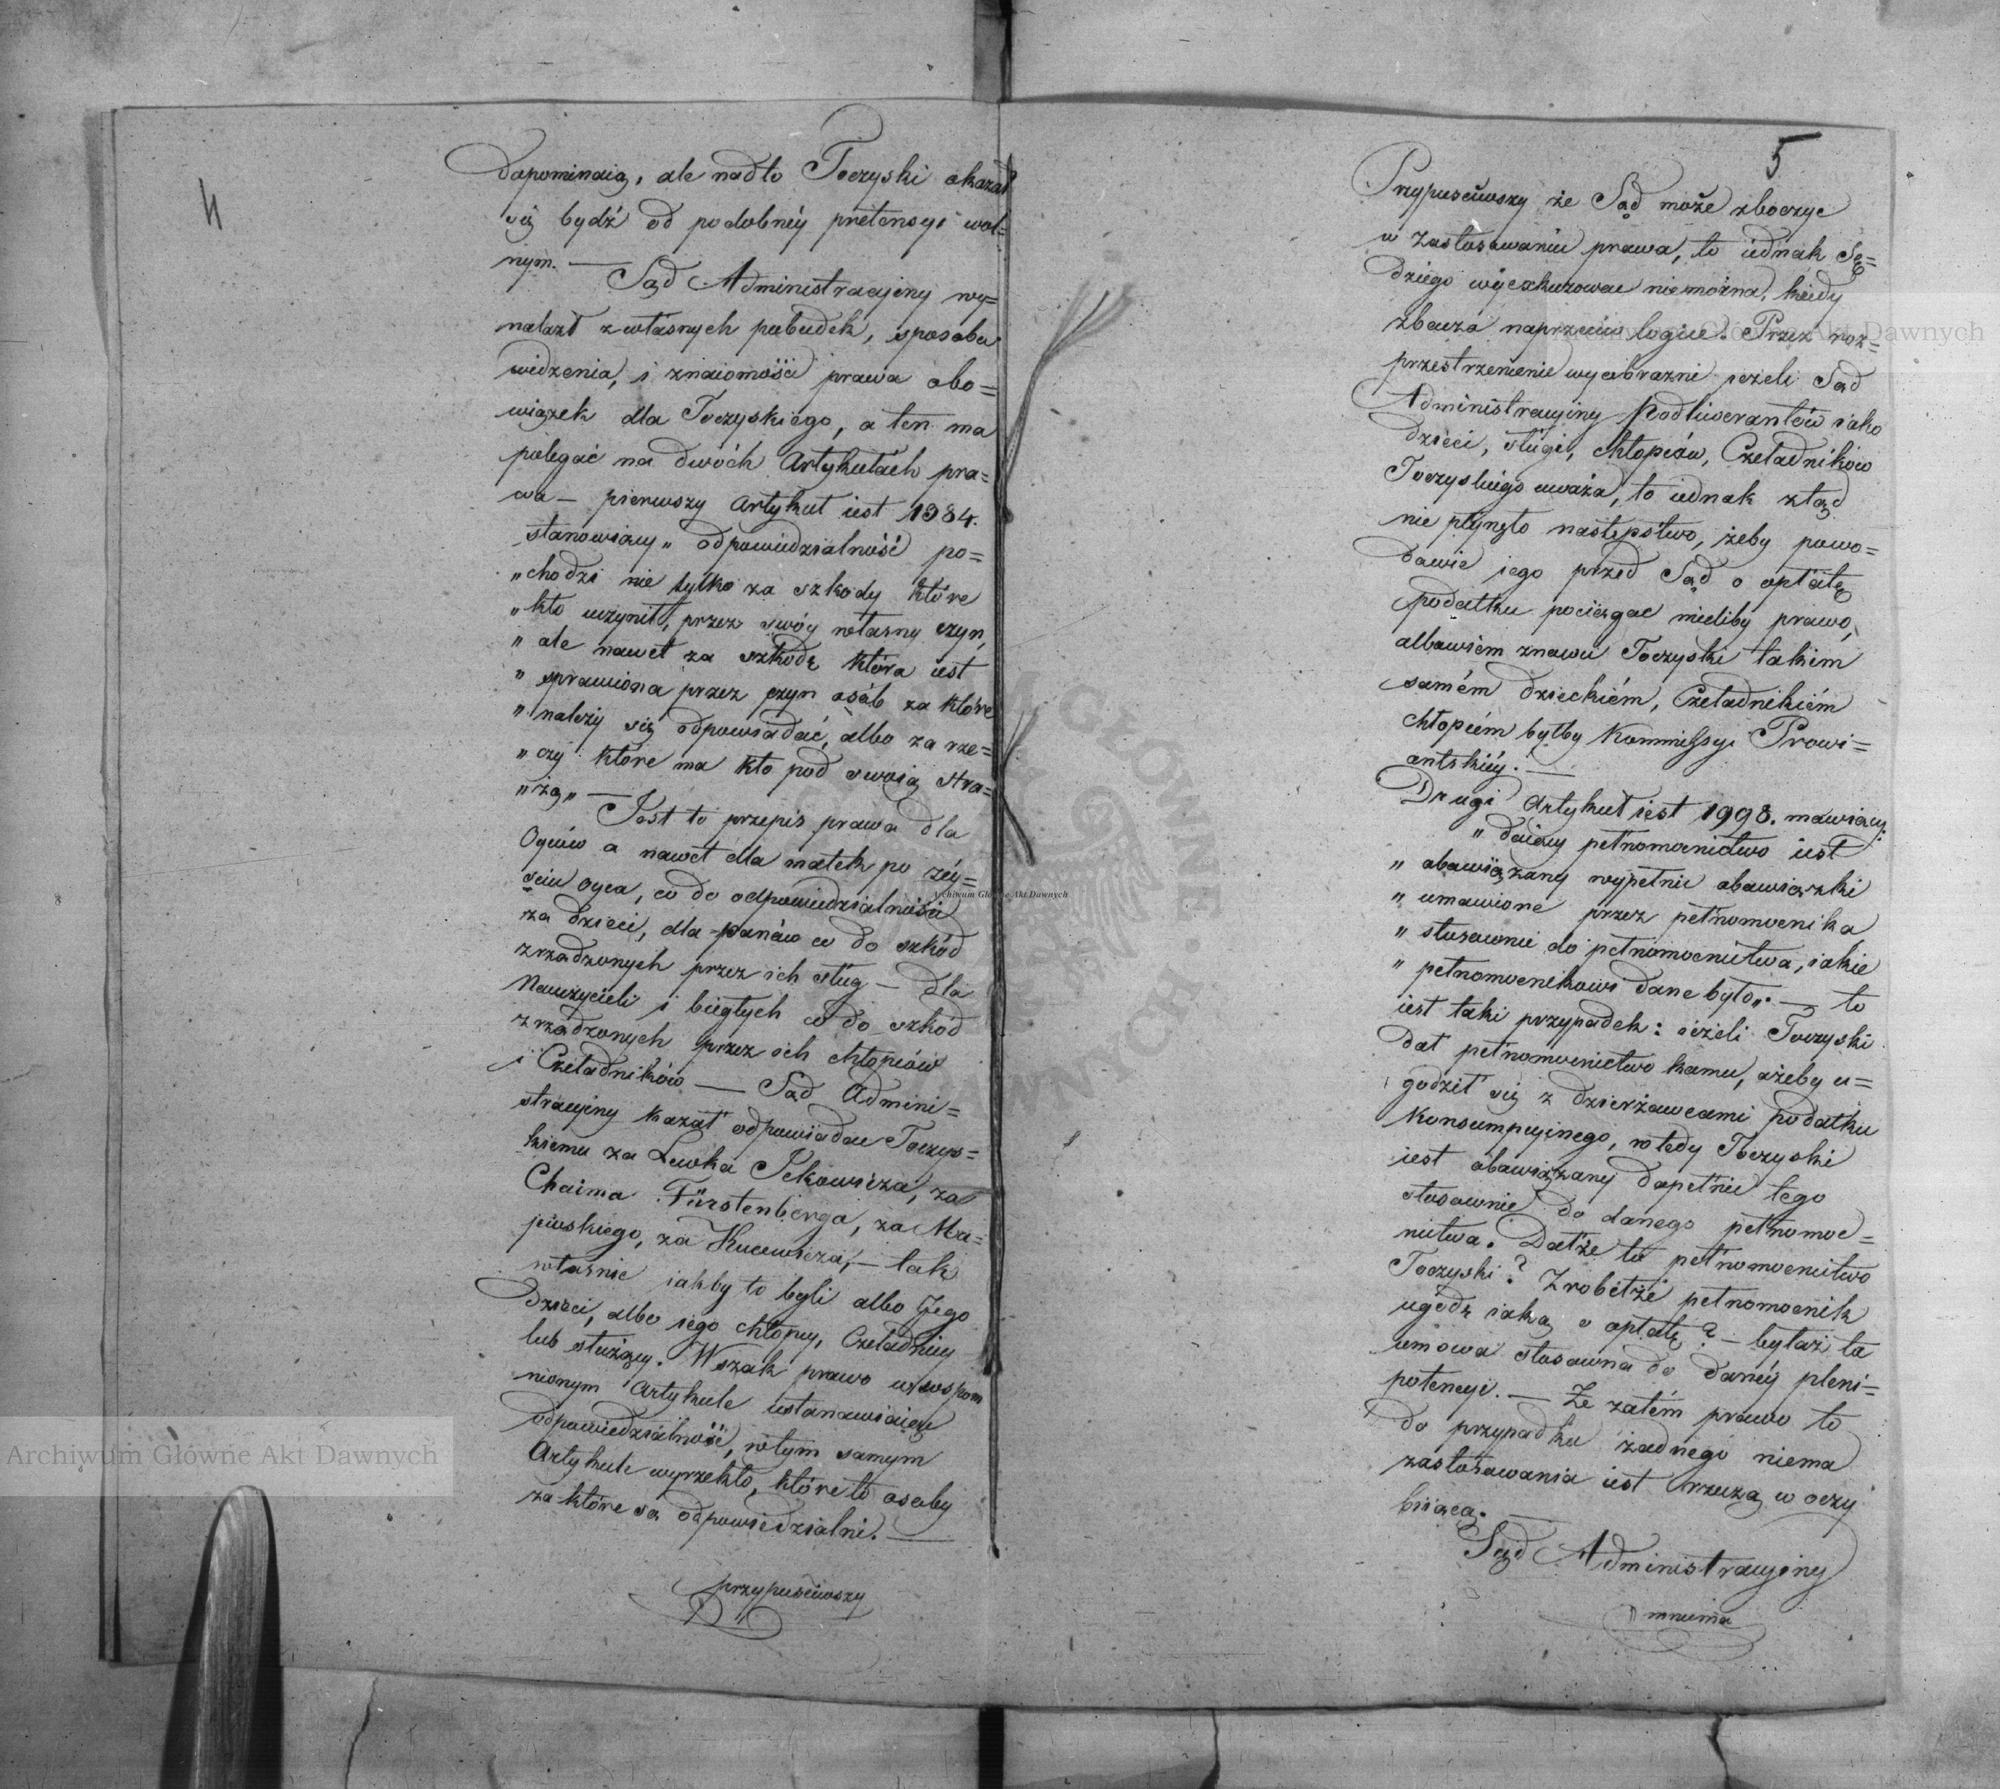 4
dopominaią, ale nadto Toczyski okazał
się bydź od podobnéy pretensyi wol=
nym. — Sąd Administracyiny wy=
nalazł z własnych pobudek, sposobu
widzenia, i znaiomości prawa obo=
wiązek dla Toczyskiego, a ten ma
polegać na dwóch Artykułach pra=
wa — pierwszy Artykuł iest 1384.
stanowiący „ odpowiedzialność po=
„ chodzi nie tylko za szkody które
„ kto uczynił, przez swóy własny czyn,
„ ale nawet za szkodę która iest
„ sprawiona przez czyn osób za które
„ należy się odpowiadać, albo za rze=
„ czy które ma kto pod swoią stra=
„ żą „ — Jest to przepis prawa dla
Oyców a nawet dla matek po zéy=
ściu oyca, co do odpowiedzialności
za dzieci, dla panów co do szkód
zrządzonych przez ich sług — dla
Nauczycieli i biegłych co do szkód
zrządzonych przez ich chłopców
i Czeladników — Sąd Admini=
stracyiny kazał odpowiadać Toczys=
kiemu za Lewka Jckowicza, za
Chaima Fürstenberga, za Ma=
jewskiego, za Kucewicza, — tak
własnie iakby to byli albo Jego
dzieci, albo iego chłopcy, Czeladnicy
lub służący. Wszak prawo w wspom
nionym Artykule ustanawiaiąc
odpowiedzialność, w tym samym
Artykule wyrzekło, które to osoby
za które są odpowiedzialni. —
przypuściwszy
5
Przypuściwszy że Sąd może zboczyć
w zastosowaniu prawa, to iednak Sę=
dziego wyexkuzować nie można, kiedy
zbacza naprzeciw logice. Przez roz=
przestrzenienie wyobrazni jeżeli Sąd
Administracyiny Podliwerantów iako
dzieci, sługi, chłopców, Czeladników
Toczyskiego uważa, to iednak ztąd
nie płynęło następstwo, żeby powo=
dowie jego przed Sąd o opłatę
podatku pociągać mieliby prawo,
albowiem znowu Toczyski takim
samém dzieckiém, Czeladnikiém
chłopcém byłby Kommissyi Prowi=
antskiéy. —
Drugi Artykuł iest 1998. mowiący:
„ daiący pełnomocnictwo iest
„ obowiązany wypełnić obowiązki
„ umowione przez pełnomocnika
„ stosownie do pełnomocnictwa, iakie
„ pełnomocnikowi dane było „. — to
iest taki przypadek: ieżeli Toczyski
dał pełnomocnictwo komu, ażeby u=
godził się z dzierżawcami podatku
Konsumpcyinego, wtedy Toczyski
iest obowiązany dopełnić tego
stosownie do danego pełnomoc=
nictwa. Dałże to pełnomocnictwo
Toczyski? Zrobiłże pełnomocnik
ugodę iaką o opłatę? — byłaż ta
umowa stosowna do danéy pleni=
potencyi. — Że zatém prawo to
do przypadku żadnego niema
zastosowania iest rzeczą w oczy
biiącą. —
Sąd Administracyiny
mniema
Archiwum Główne Akt Dawnych
Archiwum Główne Akt Dawnych
Archiwum Główne Akt Dawnych